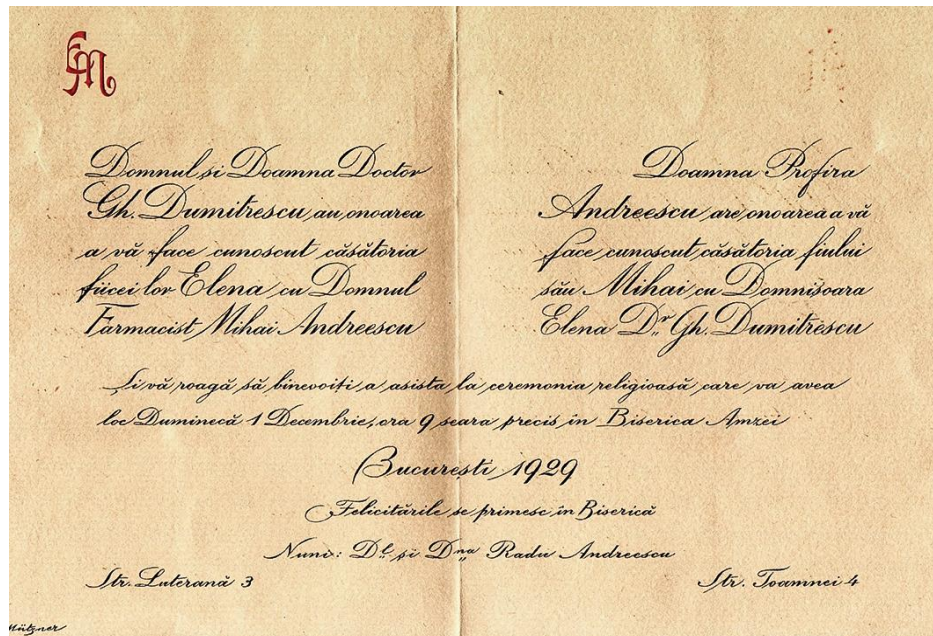 EM
Domnul și Doamna Doctor
Gh. Dumitrescu au onoarea
a vă face cunoscut căsătoria
fiicei lor Elena cu Domnul
Farmacist Mihai Andreescu
Doamna Profira
Andreescu are onoarea a vă
face cunoscut căsătoria fiului
său Mihai cu Domnișoara
Elena Dr. Gh. Dumitrescu
Și vă roagă să binevoiți a asista la ceremonia religioasă care va avea
loc Duminecă 1 Decembrie, ora 9 seara precis în Biserica Amzei
București 1929
Felicitările se primesc în Biserică
Nuni: Dl. și Dna Radu Andreescu
Str. Luterană 3
Str. Toamnei 4
Mützner